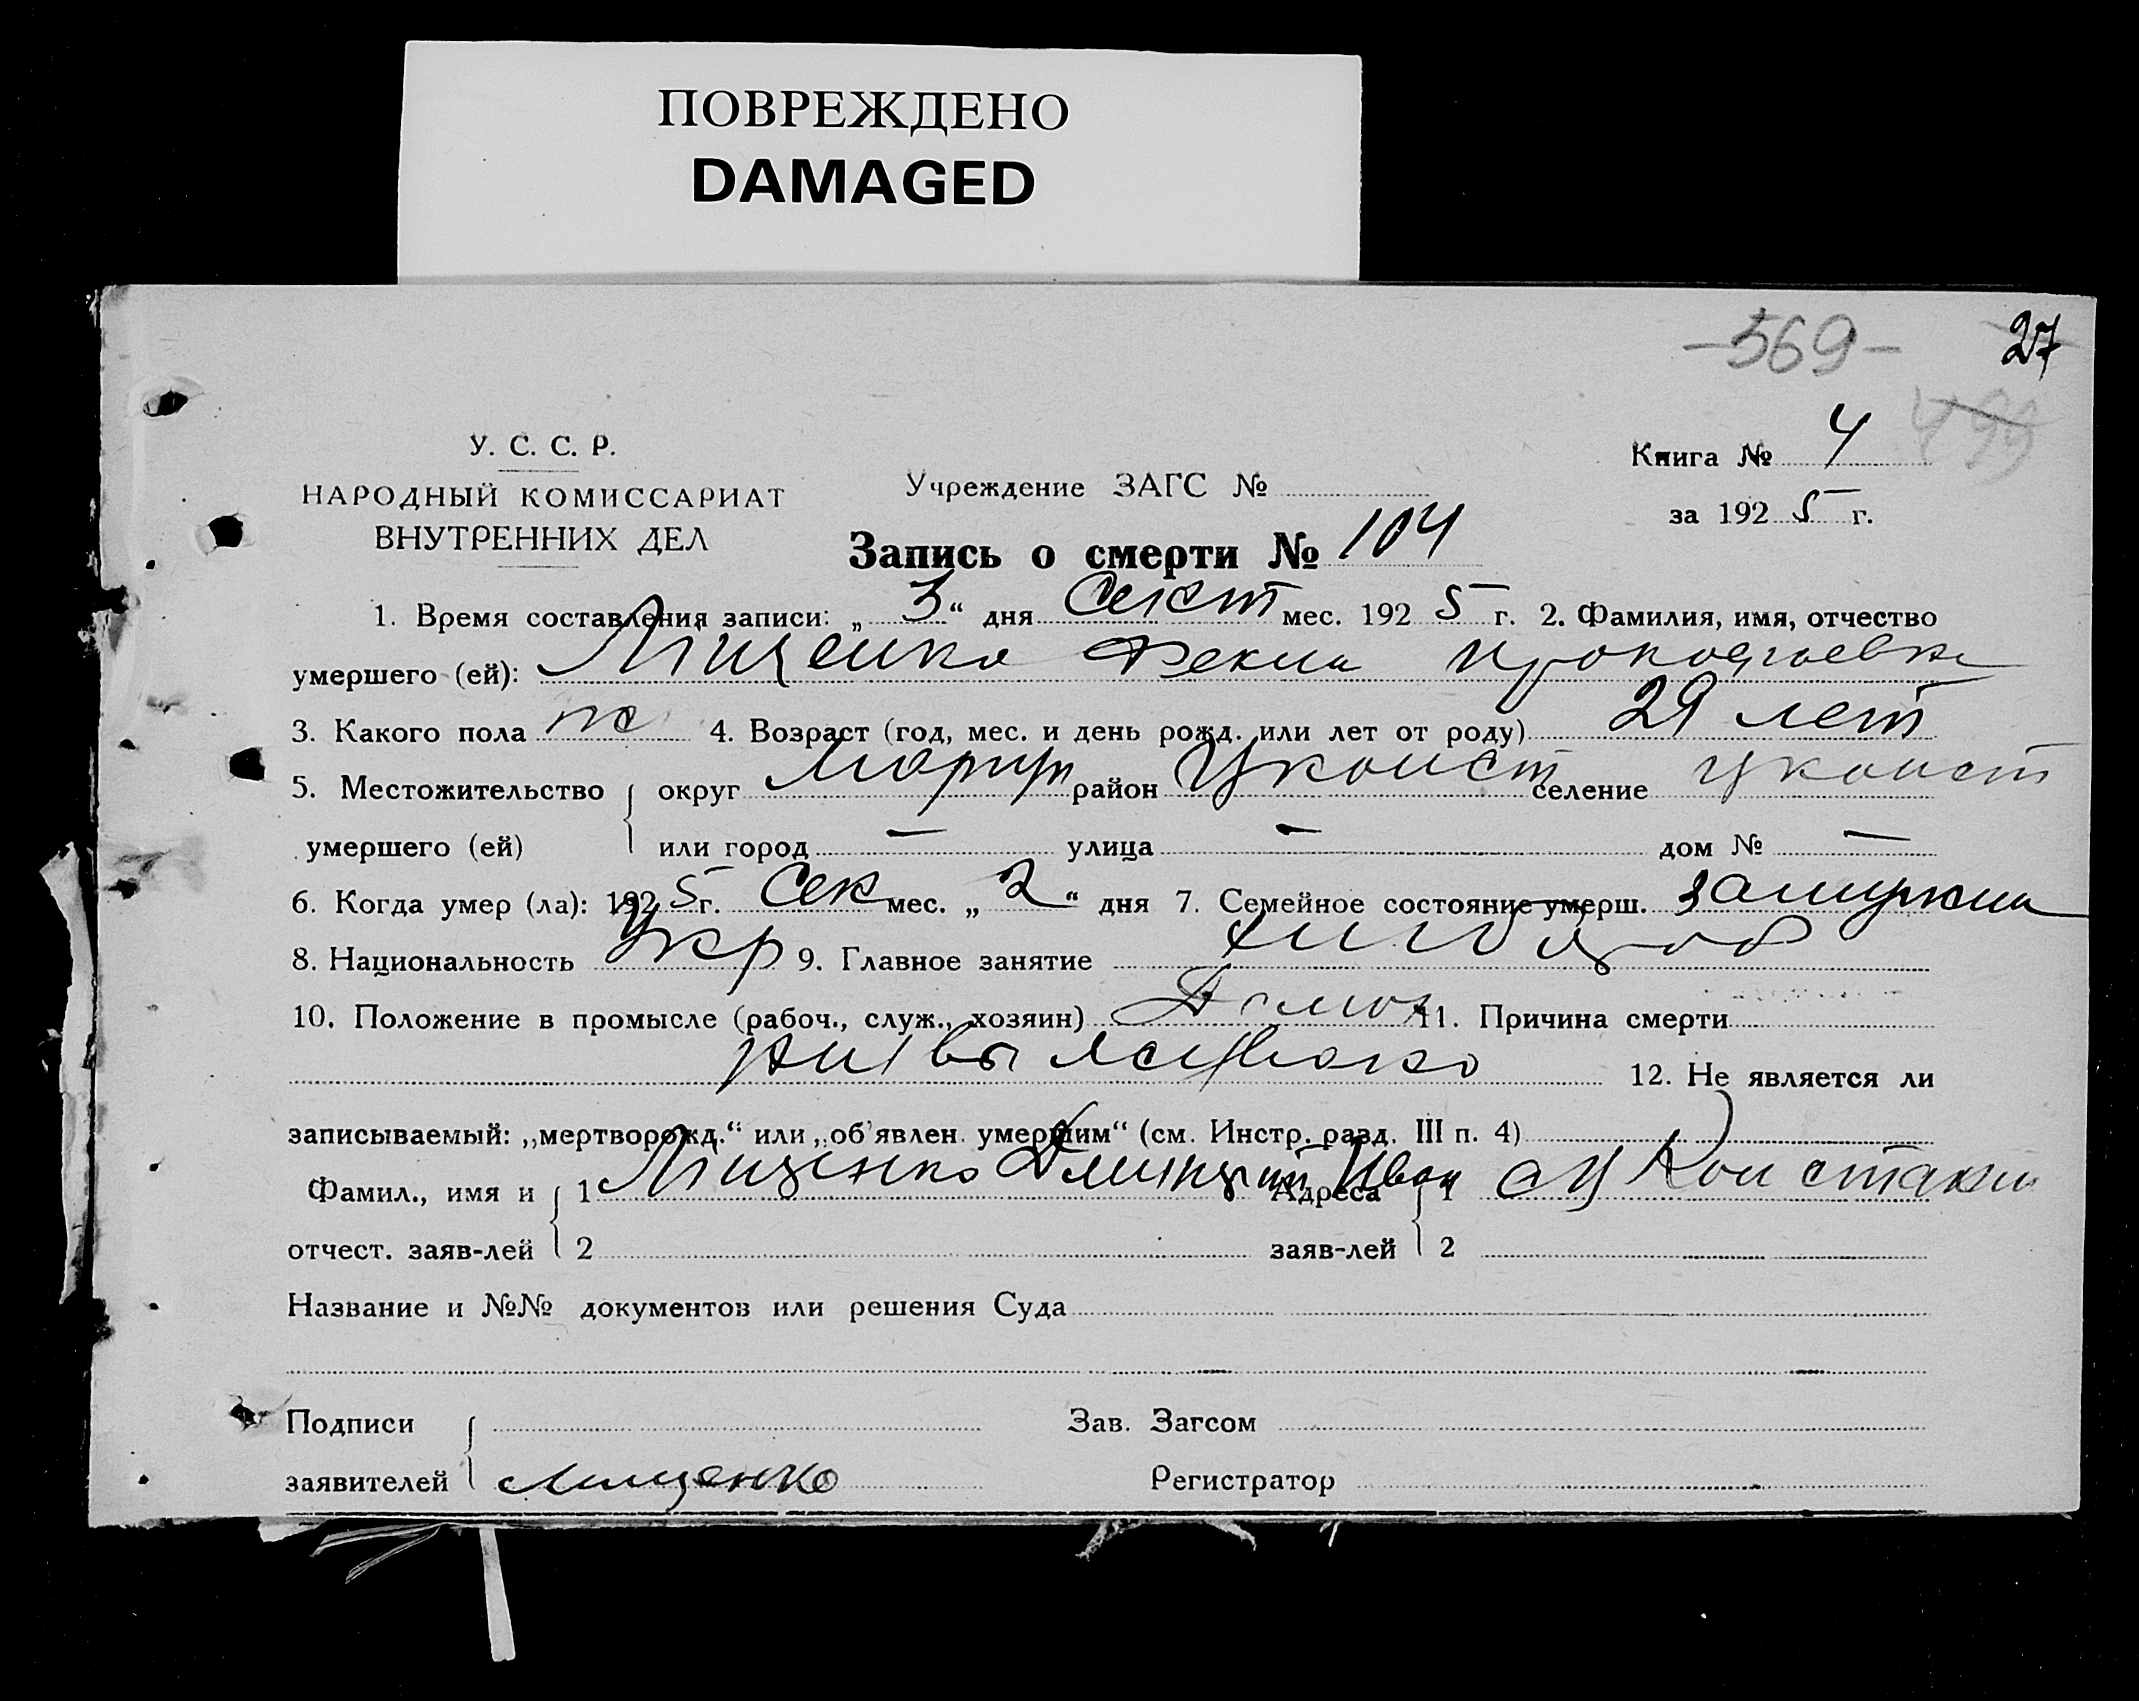 ПОВРЕЖДЕНО
DAMAGED
-569- 27
499
У. С. С. Р.
НАРОДНЫЙ КОМИССАРИАТ
ВНУТРЕННИХ ДЕЛ
Учреждение ЗАГС №
Книга № 4
за 1925 г.
Запись о смерти № 104
1. Время составления записи: „ 3 “ дня Сект мес. 192 5 г. 2. Фамилия, имя, отчество
умершего (ей): Мищенко Фекла
3. Какого пола ж 4. Возраст (год, мес. и день рожд. или лет от роду) 29 лет
5. Местожительство округ Мариуп район Цконст селение Цконст
умершего (ей) или город — улица — дом № —
6. Когда умер (ла): 192 5 г. Сек мес. „ 2 “ дня 7. Семейное состояние умерш. замужем
8. Национальность Укр 9. Главное занятие хлебороб
10. Положение в промысле (рабоч., служ., хозяин) Домох 11. Причина смерти
12. Не является ли
записываемый: „мертворожд.“ или „об'явлен умершим“ (см. Инстр. разд. III п. 4)
Фамил., имя и 1 Мищенко Дмитрий Иван Адреса 1
отчест. заяв-лей 2 заяв-лей 2
Название и №№ документов или решения Суда
Подписи Зав. Загсом
заявителей Мищенко Регистратор